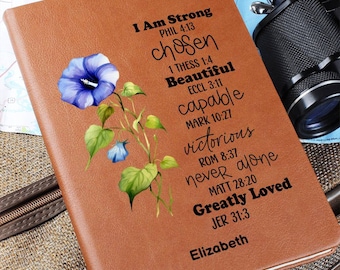 I Am Strong
PHIL 4:13
chosen
1 THESS 1:4
Beautiful
ECCL 3:11
capable
MARK 10:27
victorious
ROM 8:37
never alone
MATT 28:20
Greatly Loved
JER 31:3
Elizabeth